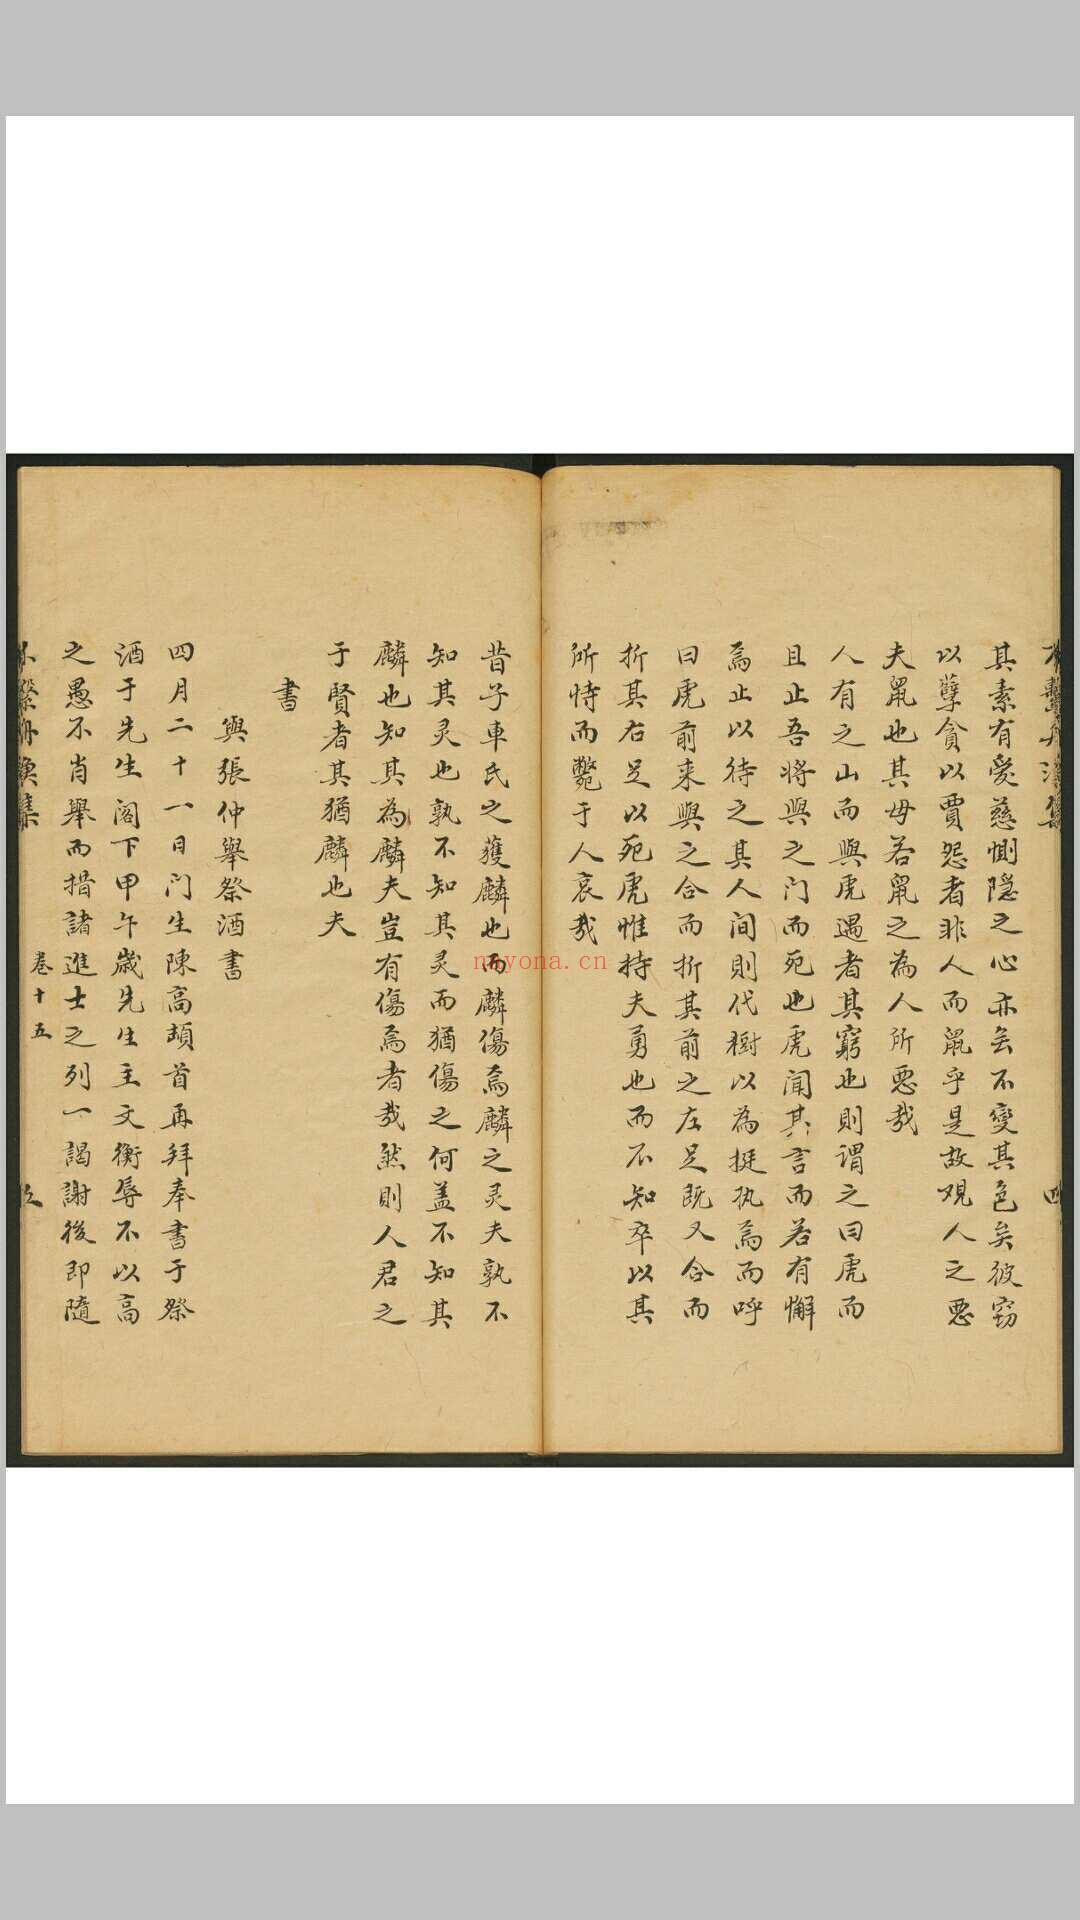 不繫舟漁集
四
其素有愛慈惻隠之心亦忘不變其色矣彼窃
以孽貪以賈怨者非人而鼠乎是故覌人之悪
夫鼠也其毋若鼠之為人所悪哉
人有之山而與虎遇者其窮也則谓之曰虎而
且止吾将與之门而死也虎闻其言而若有懈
焉止以待之其人间則代樹以為挺执焉而呼
曰虎前来與之合而折其前之左足既又合而
折其右足以死虎惟持夫勇也而不知卒以其
所恃而斃于人哀哉
昔子車氏之獲麟也而麟傷焉麟之灵夫孰不
知其灵也孰不知其灵而猶傷之何盖不知其
麟也知其為麟夫豈有傷焉者哉然則人君之
于賢者其猶麟也夫
書
與張仲舉祭酒書
四月二十一日门生陳高頓首再拜奉書于祭
酒于先生阁下甲午歲先生主文衡辱不以高
之愚不肖舉而措諸進士之列一謁謝後即隨
不繫舟漁集
卷十五
五
miyona.cn